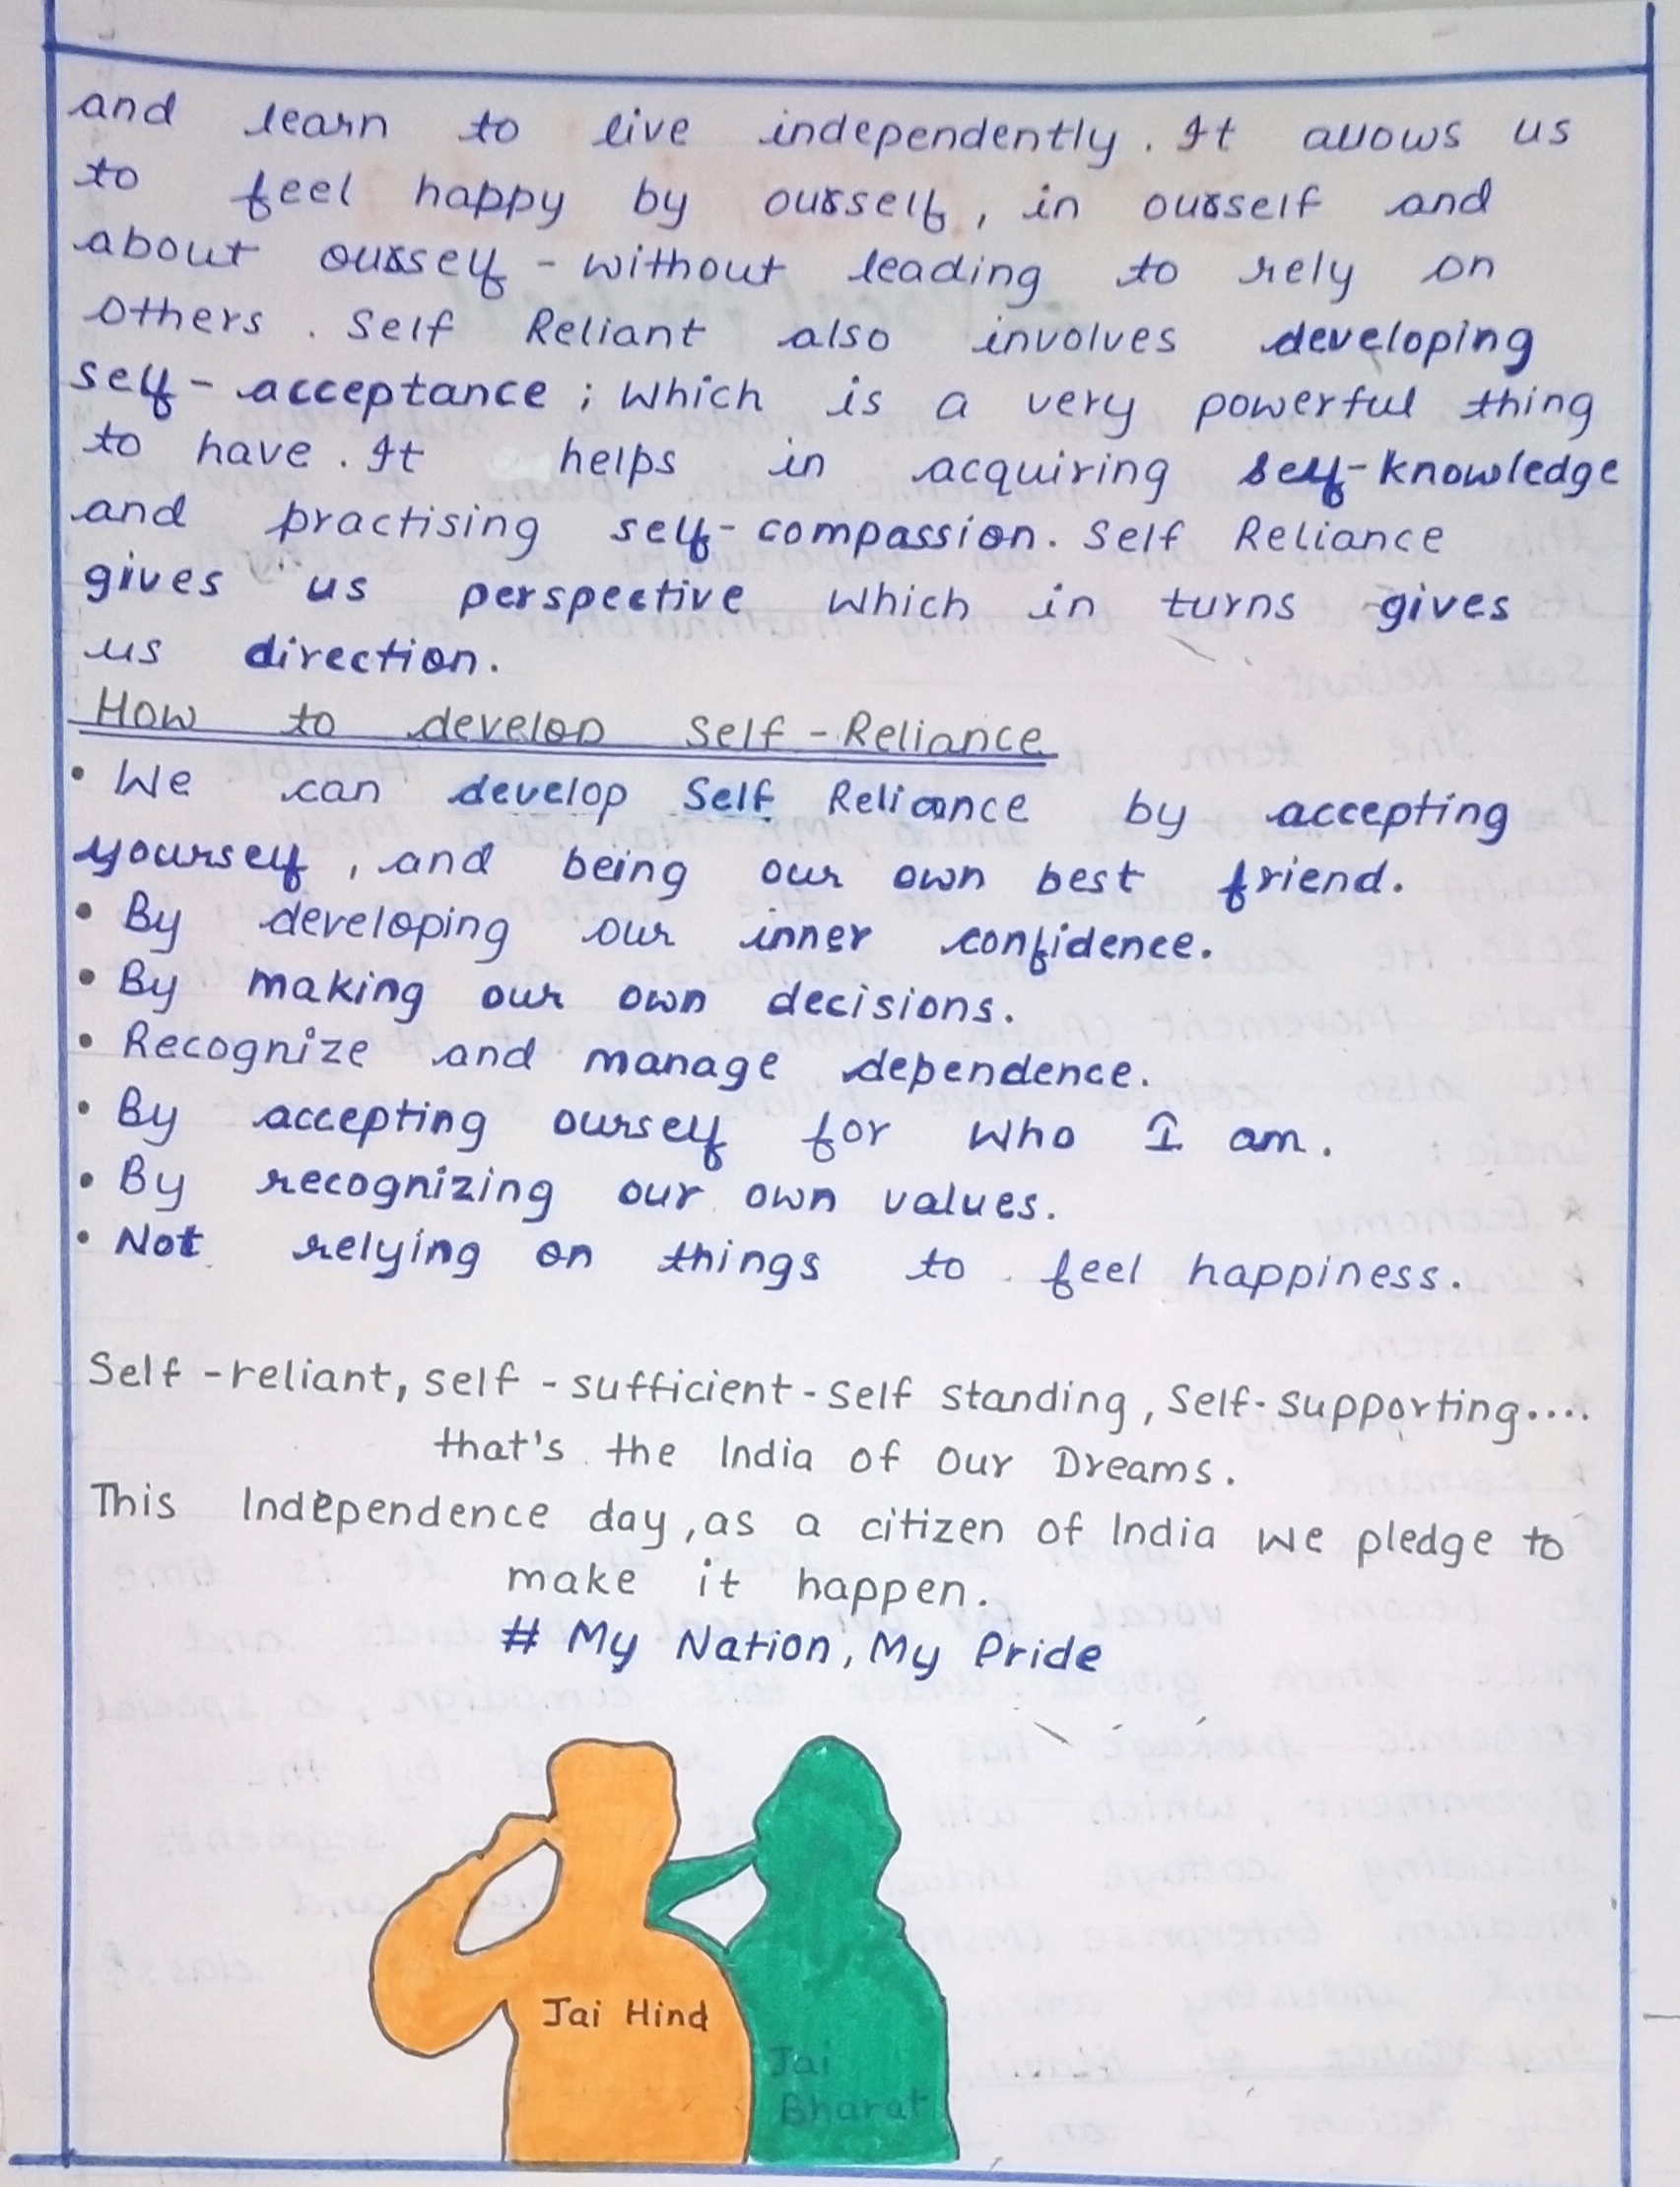 and learn to live independently. It allows us
to feel happy by ourself, in ourself and
about ourself - without leading to rely on
others. Self Reliant also involves developing
self-acceptance; which is a very powerful thing
to have. It helps in acquiring self-knowledge
and practising self-compassion. Self Reliance
gives us perspective which in turns gives
us direction.
How to develop Self-Reliance
• We can develop Self Reliance by accepting
yourself, and being our own best friend.
• By developing our inner confidence.
• By making our own decisions.
• Recognize and manage dependence.
• By accepting ourself for who I am.
• By recognizing our own values.
• Not relying on things to feel happiness.
Self-reliant, self-sufficient-self standing, Self-supporting....
that's the India of our Dreams.
This Independence day, as a citizen of India we pledge to
make it happen.
# My Nation, My Pride
Jai Hind
Jai
Bharat